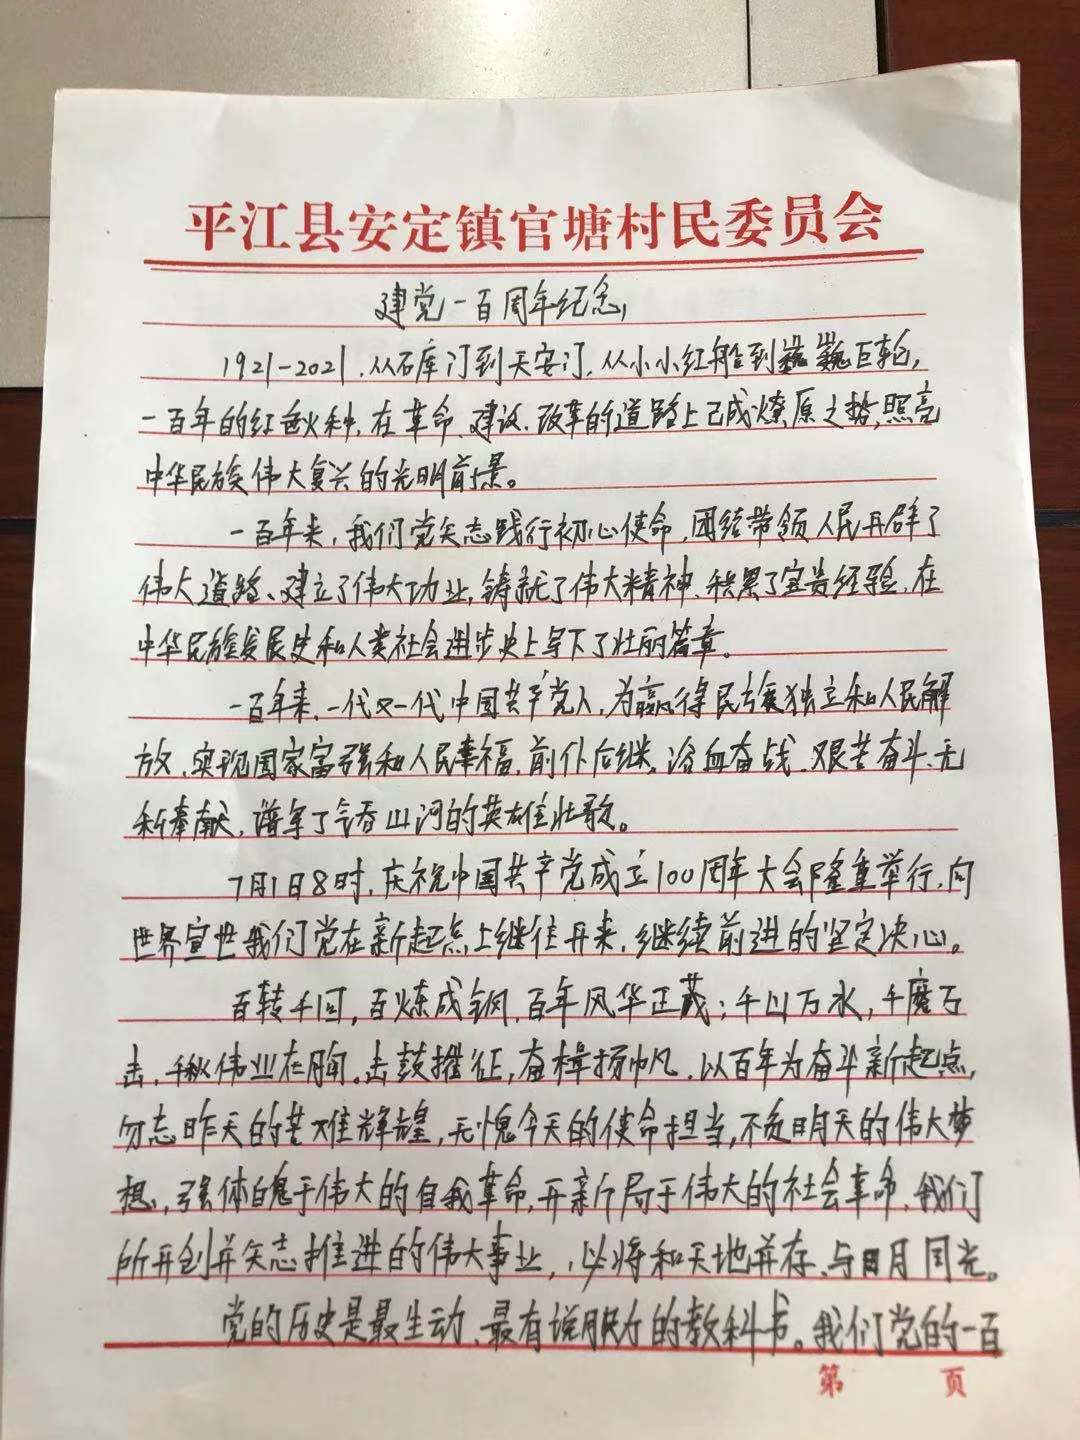 平江县安定镇官塘村民委员会
建党一百周年纪念
1921-2021，从石库门到天安门，从小小红船到巍巍巨轮，
一百年的红色火种，在革命、建设、改革的道路上已成燎原之势，照亮
中华民族伟大复兴的光明前景。
一百年来，我们党矢志践行初心使命，团结带领人民开辟了
伟大道路、建立了伟大功业，铸就了伟大精神、积累了宝贵经验，在
中华民族发展史和人类社会进步史上写下了壮丽篇章。
一百年来，一代又一代中国共产党人，为赢得民族独立和人民解
放、实现国家富强和人民幸福，前仆后继、浴血奋战、艰苦奋斗、无
私奉献，谱写了气吞山河的英雄壮歌。
7月1日8时，庆祝中国共产党成立100周年大会隆重举行，向
世界宣世我们党在新起点上继往开来，继续前进的坚定决心。
百转千回，百炼成钢，百年风华正茂；千山万水，千磨万
击，千秋伟业在胸。击鼓催征，奋楫扬帆，以百年为奋斗新起点，
勿忘昨天的苦难辉煌，无愧今天的使命担当，不负明天的伟大梦
想，强体魄于伟大的自我革命，开新局于伟大的社会革命，我们
所开创并矢志推进的伟大事业，必将和天地并存、与日月同光。
党的历史是最生动、最有说服力的教科书。我们党的一百
第 页